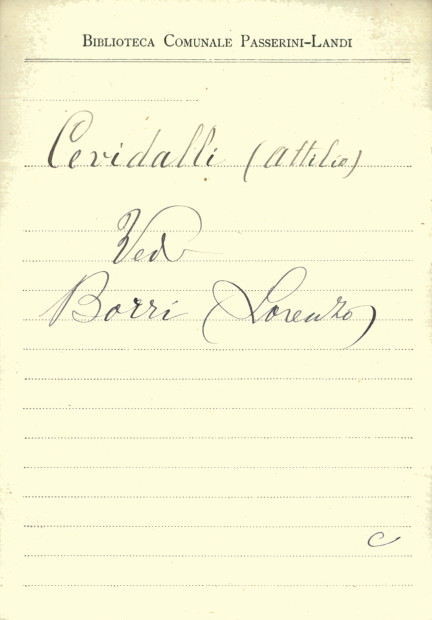 Biblioteca Comunale Passerini-Landi
Cevidalli (Attilio)
Vedi
Borri (Lorenzo)
c